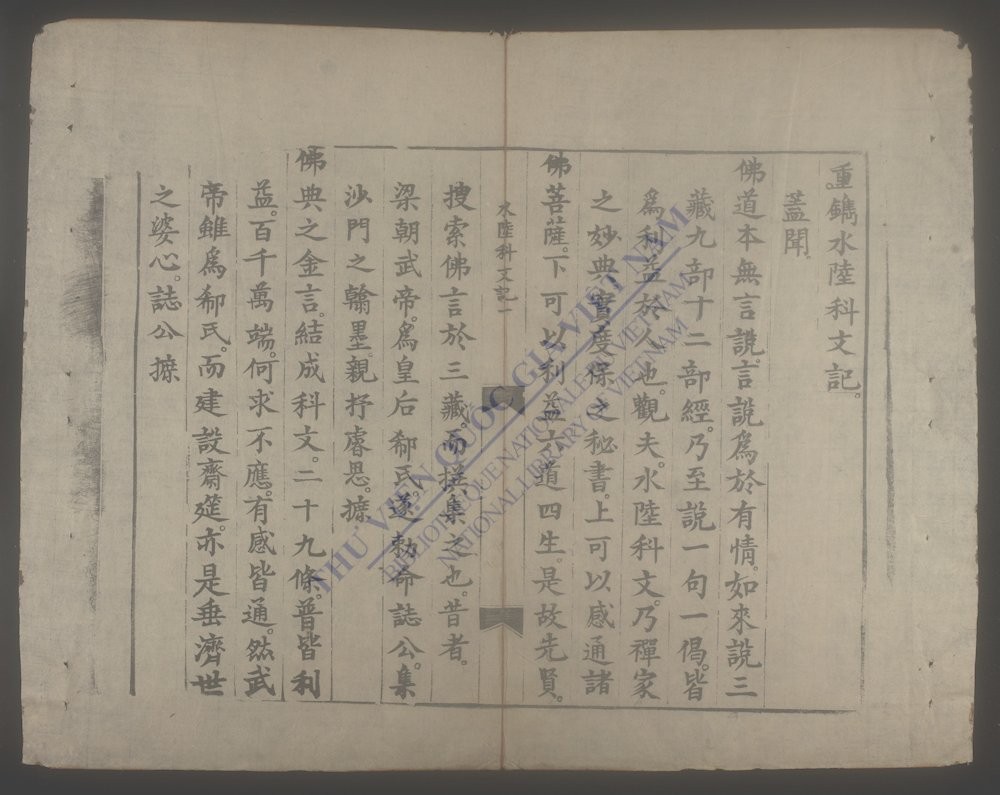 重鐫水陸科文記。
蓋聞。
佛道本無言說。言說爲於有情。如來說三
藏九部十二部經。乃至說一句一偈。皆
爲利益於人也。觀夫。水陸科文。乃禪家
之妙典。實度保之秘書。上可以感通諸
佛菩薩。下可以利益六道四生。是故先賢。
水陸科文記一
搜索佛言於三藏。而撰集之也。昔者。
梁朝武帝。爲皇后郗氏。遂勅命誌公。集
沙門之翰墨。親抒睿思。據
佛典之金言。結成科文。二十九條。普皆利
益。百千萬端。何求不應。有感皆通。然武
帝雖爲郗氏。而建設齋筵。亦是垂濟世
之婆心。誌公據
THƯ VIỆN QUỐC GIA VIỆT NAM
BIBLIOTHEQUE NATIONALE DU VIETNAM
NATIONAL LIBRARY OF VIETNAM